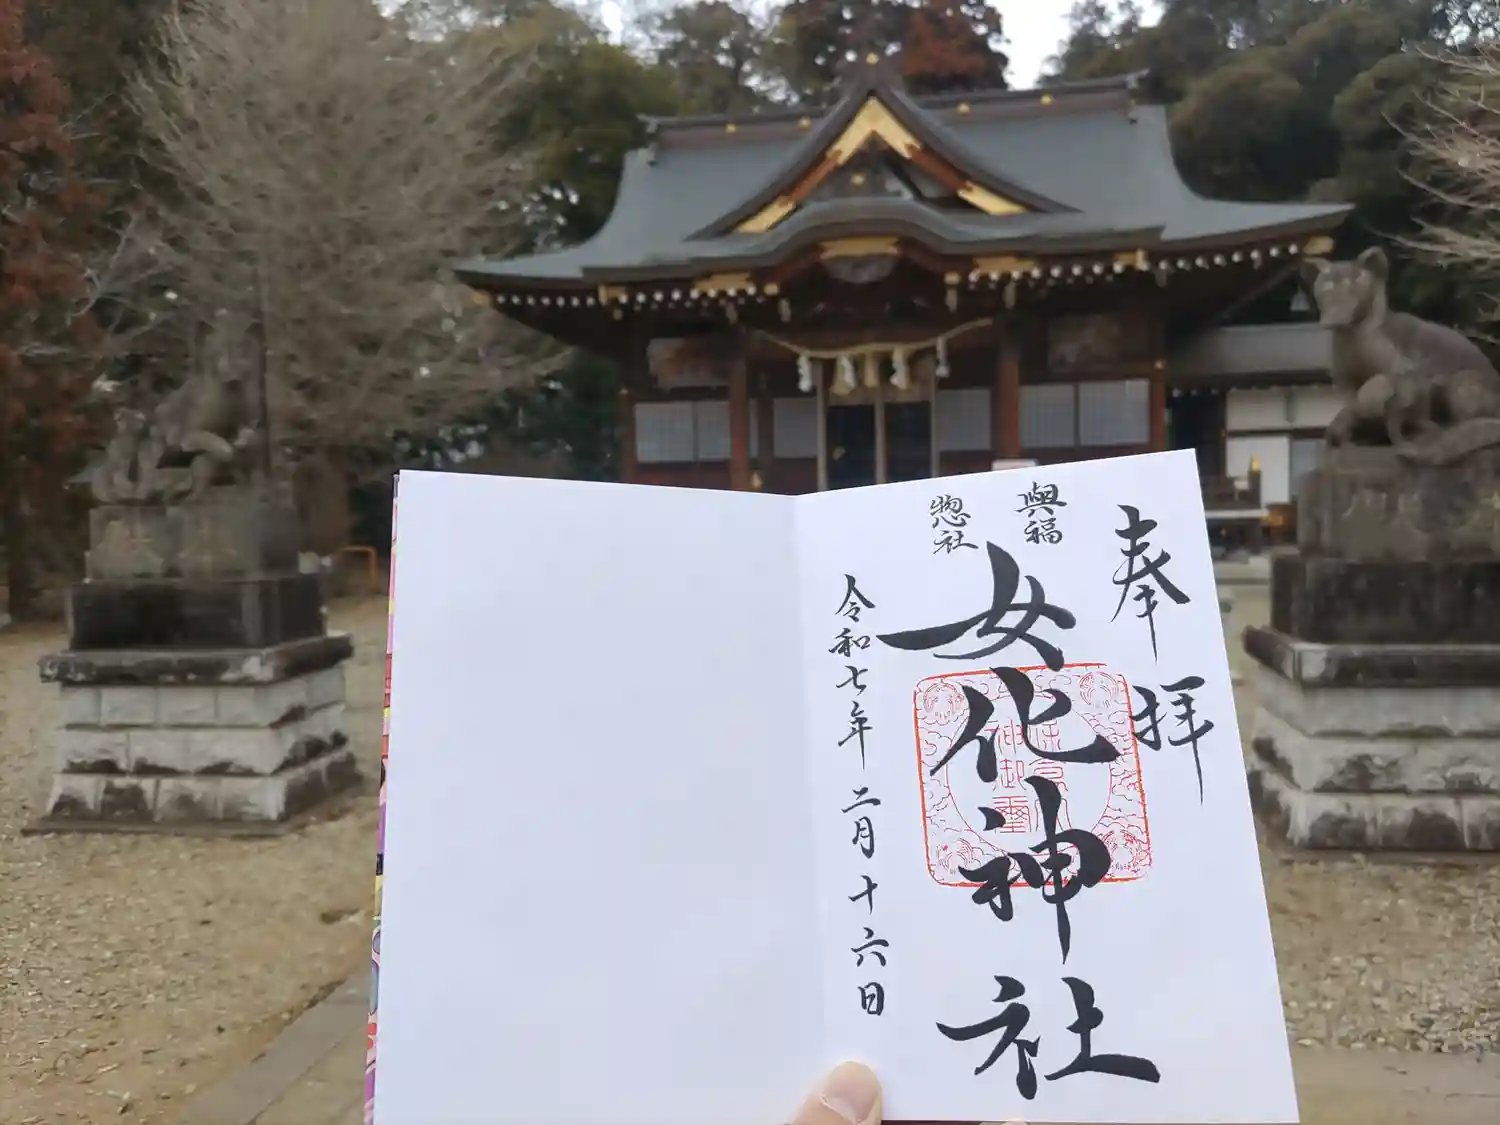 奉拝
興福
惣社
女化神社
令和七年二月十六日